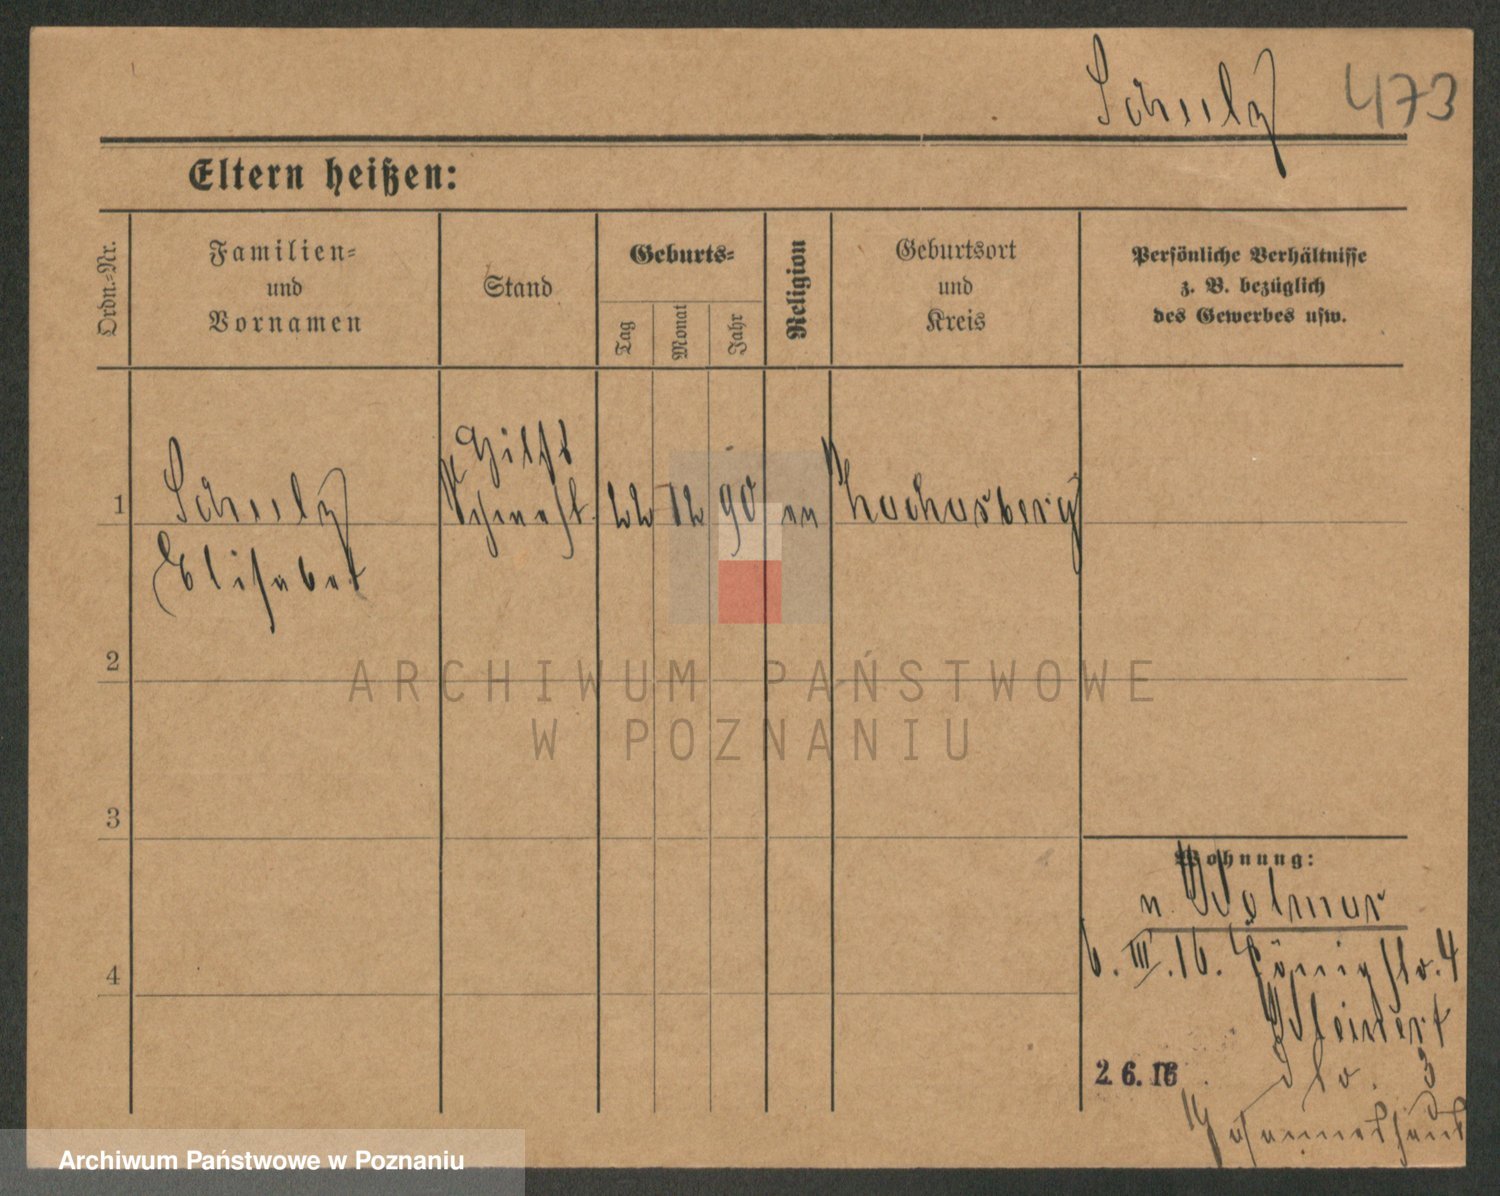 Schulz 473
Eltern heißen:
Ordn.=Nr.
Familien=
und
Vornamen
Stand
Geburts=
Tag
Monat
Jahr
Religion
Geburtsort
und
Kreis
Persönliche Verhältnisse
z. B. bezüglich
des Gewerbes usw.
1
Schulz
Elisabet
Hilfs
22 12 90
2
3
4
ARCHIWUM PAŃSTWOWE
W POZNANIU
Wohnung:
n. Wolmar
6. III. 16. Königstr. 4
2.6.16
Str. 3
Archiwum Państwowe w Poznaniu